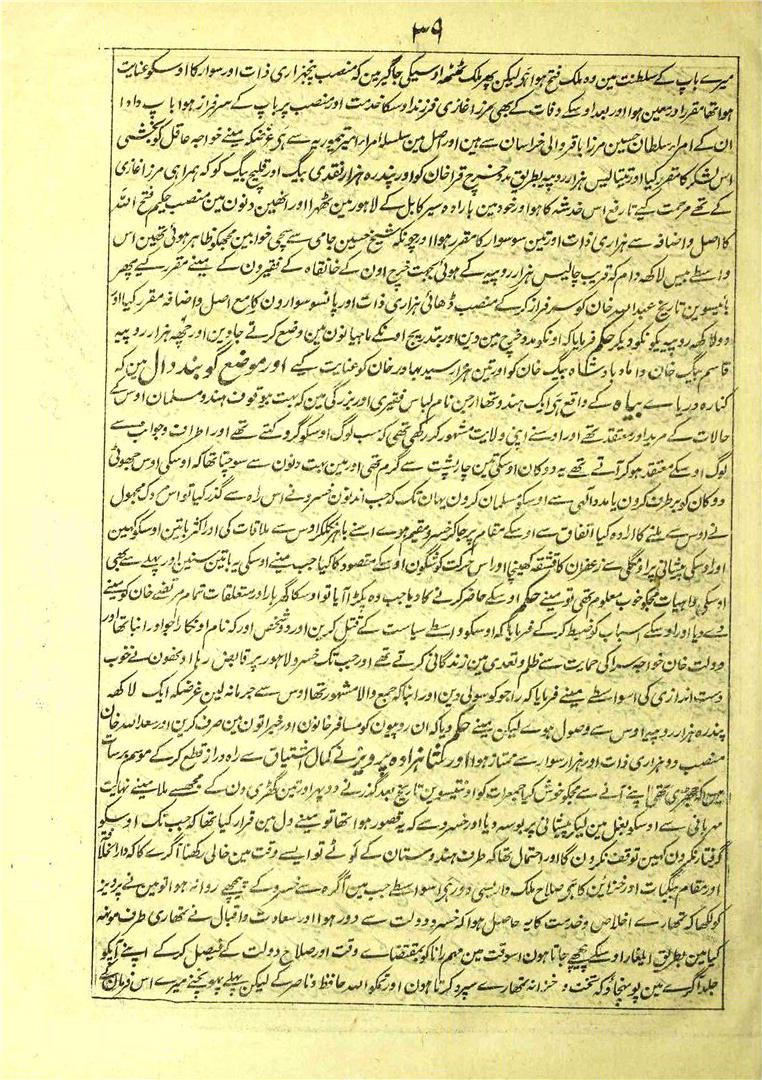 ۳۹
میرے باپ کے سلطنت مین وہ ملک فتح ہوا تہا لیکن پھر ملک ٹھٹھہ اوسیکی جاگیر مین کہ منصب پنجہزاری ذات اور سوار کا اوسکو عنایت
ہوا تھا مقرر اور معین ہوا اور بعد اوسکے وفات کے بھی مرزا غازی فرزند اوسکا خدمت اور منصب پر باپ کے سرفراز ہوا باپ دادا
ان کے امراء سلطان حسین مرزا باقرا والی خراسان سے ہین اور اصل مین سلسلہ امراء امیر تیموریہ سے ہی غرضکہ مینے خواجہ عاقل کو بخشی
اس لشکر کا مقرر کیا اور تینتالیس ہزار روپیہ بطریق مدد خرچ قرا خان کو اور پندرہ ہزار نقدی بیگ اور قلیچ بیگ کو کہ ہمراہی مرزا غازی
کے تھے مرحمت کیے تا رفع اس خدشہ کا ہو اور خود مین بارادہ سیر کابل کے لاہور مین ٹھہرا اور انھین دنون مین منصب حکیم فتح اللہ
کا اصل و اضافہ سے ہزاری ذات اور تین سو سوار کا مقرر ہوا اور چونکہ شیخ حسین جامی سے سچی خوابین مجھکو ظاہر ہوئی تھین اس
واسطے بیس لاکھہ دام کہ قریب چالیس ہزار روپیہ کے ہوئی بجہت خرچ اون کے خانقاہ کے فقیرون کے مینے مقرر کیے پھر
بائیسوین تاریخ عبداللہ خان کو سرفراز کرکے منصب ڈھائی ہزاری ذات اور پانسو سوارون کا مع اصل و اضافہ مقرر کیا او
دو لاکھہ روپیہ یکونکو دیکر حکم فرمایا کہ اونکو مدد خرچ مین دین اور بتدریج اونکے ماہیانون مین وضع کرتے جاوین اور چھہ ہزار روپیہ
قاسم بیگ خان داماد بادشاہ بیگ خان کو اور تین ہزار سید بہادر خان کو عنایت کیے اور موضع گوبند وال مین کہ
کنارہ دریاے بیاہ کے واقع ہی ایک ہندو تھا ارجن نام لباس فقیری اور بزرگی مین کہ بہت بیوقوف ہندو مسلمان اوس کے
حالات کے مرید اور معتقد تھے اور اوسنے اپنی ولایت مشہور کر رکھی تھی کہ سب لوگ اوسکو گرو کہتے تھے اور اطراف و جوانب سے
لوگ اوسکے معتقد ہو کر آتے تھے یہ دوکان اوسکی تین چار پشت سے گرم تھی اور مین بہت دنون سے سوچتا تھا کہ اوسکی اوس جھوٹی
دوکان کو برطرف کرون یا مدد الٰہی سے اوسکو مسلمان کرون یہان تک کہ جب اندنون خسرو نے اس راہ سے گذر کیا تو اس مجہول
نے اوس سے ملنے کا ارادہ کیا اتفاق سے اوسکے مقام پر جا کر خسرو مقیم ہوے اسنے باہر نکلکر اوس سے ملاقات کی اور اکثر باتین اوسکو کہین
اور اوسکی پیشانی پر اونگلی سے زعفران کا قشقہ کھینچا اور اس حرکت کو شگون اوسکے مقصود کا کیا جب مینے اوسکی یہ باتین سنین اور پہلے سے بھی
اوسکی واہیات مجھکو خوب معلوم تھی تو مینے حکم اوسکے حاضر کرنے کا دیا جب وہ پکڑا آیا تو اوسکا گھر بار اور متعلقات تمام مرتضے خان کو مینے
دے دیا اور اوسکے اسباب کو ضبط کرکے فرمایا کہ اوسکو واسطے سیاست کے قتل کرین اور دو شخص اور کہ نام اونکا راجو اور انبا تھا اور
دولت خان خواجہ سرا کی حمایت سے ظلم و تعدی مین زندگانی کرتے تھے اور جب تک خسرو لاہور پر قابض رہا اونھون نے خوب
دست اندازی کی اسواسطے مینے فرمایا کہ راجو کو سولی دین اور انبا کہ جمع والا مشہور تھا اوس سے جرمانہ لین غرضکہ ایک لاکھہ
پندرہ ہزار روپیہ اوس سے وصول ہوے لیکن مینے حکم دیا کہ ان روپیون کو مسافر خانون اور خیراتون مین صرف کرین اور سعد اللہ خان
منصب دو ہزاری ذات اور ہزار سوار سے ممتاز ہوا اور شاہزادہ پرویز نے کمال اشتیاق سے راہ دراز قطع کرکے موسم برسات
مین کہ جھڑی تھی اپنے آنے سے مجکو خوش کیا جمعرات کو اونتیسوین تاریخ بعد گذرنے دو پہر اور تین گھڑی دن کے مجھسے ملا مینے نہایت
مہربانی سے اوسکو بغل مین لیکر پیشانی پر بوسہ دیا اور خسرو سے کہ یہ قصور ہوا تھا تو مینے دل مین قرار کیا تھا کہ جب تک اوسکو
گرفتار نکرون کہین توقف نکرون گا اور احتمال تھا کہ طرف ہندوستان کے لوٹے تو ایسے وقت مین خالی رکھنا آگرے کا کہ دار الخلافت
اور مقام بیگمات اور خزائن کا ہی صلاح ملک داری سے دور ہی اسواسطے جب مین آگرہ سے خسرو کے پیچھے روانہ ہوا تو مین نے پرویز
کو لکھا کہ تمھارے اخلاص و خدمت کا یہ حاصل ہوا کہ خسرو دولت سے دور ہوا اور سعادت و اقبال نے تمھاری طرف مونھہ
کیا مین بطریق ایلغار اوسکے پیچھے جاتا ہون اسوقت مین مہم رانا کو بمقتضاے وقت اور صلاح دولت کے فیصل کرکے اپنے آپکو
جلد آگرے مین پہونچاؤ کہ تخت و خزانہ تمھارے سپرد کرتا ہون اور تمکو اللہ حافظ و ناصر کے لیکن پہلے پہونچنے میرے اس فرمان کے